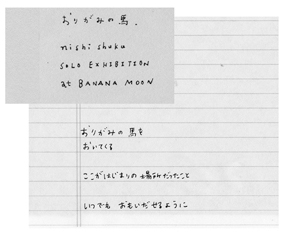 おりがみの馬.
nishi shuku
SOLO EXHIBITION
at BANANA MOON
おりがみの馬を
おいてくる
ここがはじまりの場所だったこと
いつでも おもいだせるように